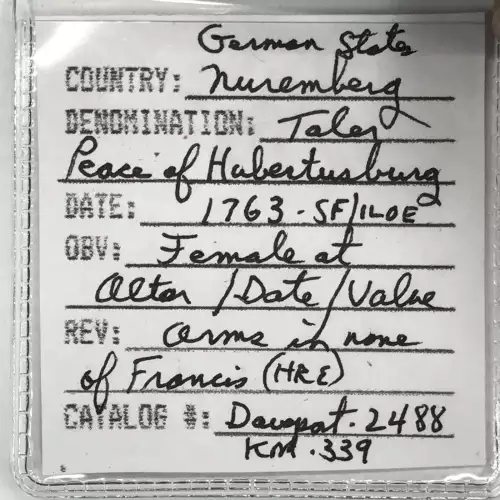 German States
COUNTRY: Nuremberg
DENOMINATION: Taler
Peace of Hubertusburg
DATE: 1763 - SF/ILOE
OBV: Female at
altar / Date / Value
REV: arms in name
of Francis (HRE)
CATALOG #: Davenpat. 2488
KM. 339